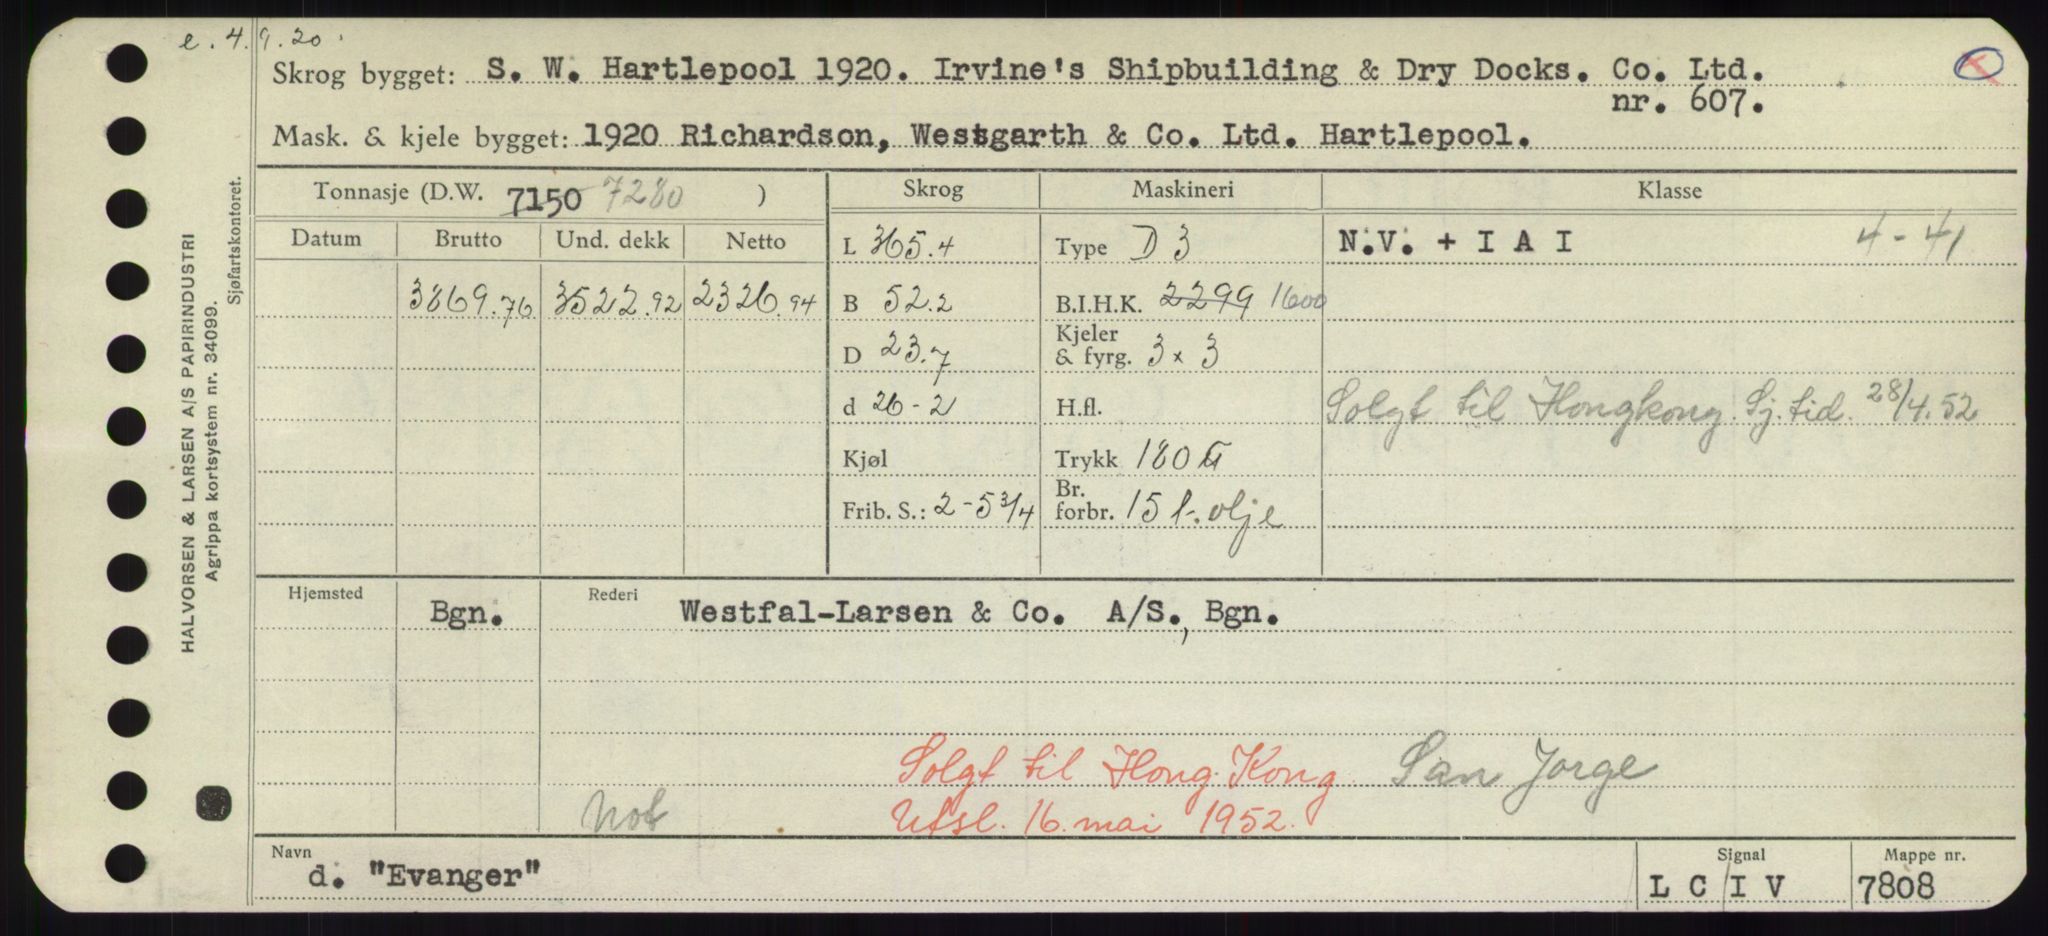 e. 4.9.20.
Skrog bygget: S. W. Hartlepool 1920. Irvine's Shipbuilding & Dry Docks. Co. Ltd.
nr. 607.
Mask. & kjele bygget: 1920 Richardson, Westgarth & Co. Ltd. Hartlepool.
Tonnasje (D.W. 7150 7280 )
Skrog
Maskineri
Klasse
Datum Brutto Und. dekk Netto
L 365.4 Type D 3 N.V. + I A I 4 - 41
3869.76 3522.92 2326.94 B 52.2 B.I.H.K. 2299 1600
D 23.7 Kjeler & fyrg. 3 x 3
d 26-2 H.fl. Solgt til Hongkong. Sj.tid. 28/4.52
Kjøl Trykk 180
Frib. S.: 2-5 3/4 Br. forbr. 15 t. olje
Hjemsted Bgn. Rederi Westfal-Larsen & Co. A/S., Bgn.
Solgt til Hong Kong San Jorge
Not Utsl. 16. mai 1952.
Navn Signal Mappe nr.
d. "Evanger" L C I V 7808
HALVORSEN & LARSEN A/S PAPIRINDUSTRI
Agrippa kortsystem nr. 34099.
Sjøfartskontoret.